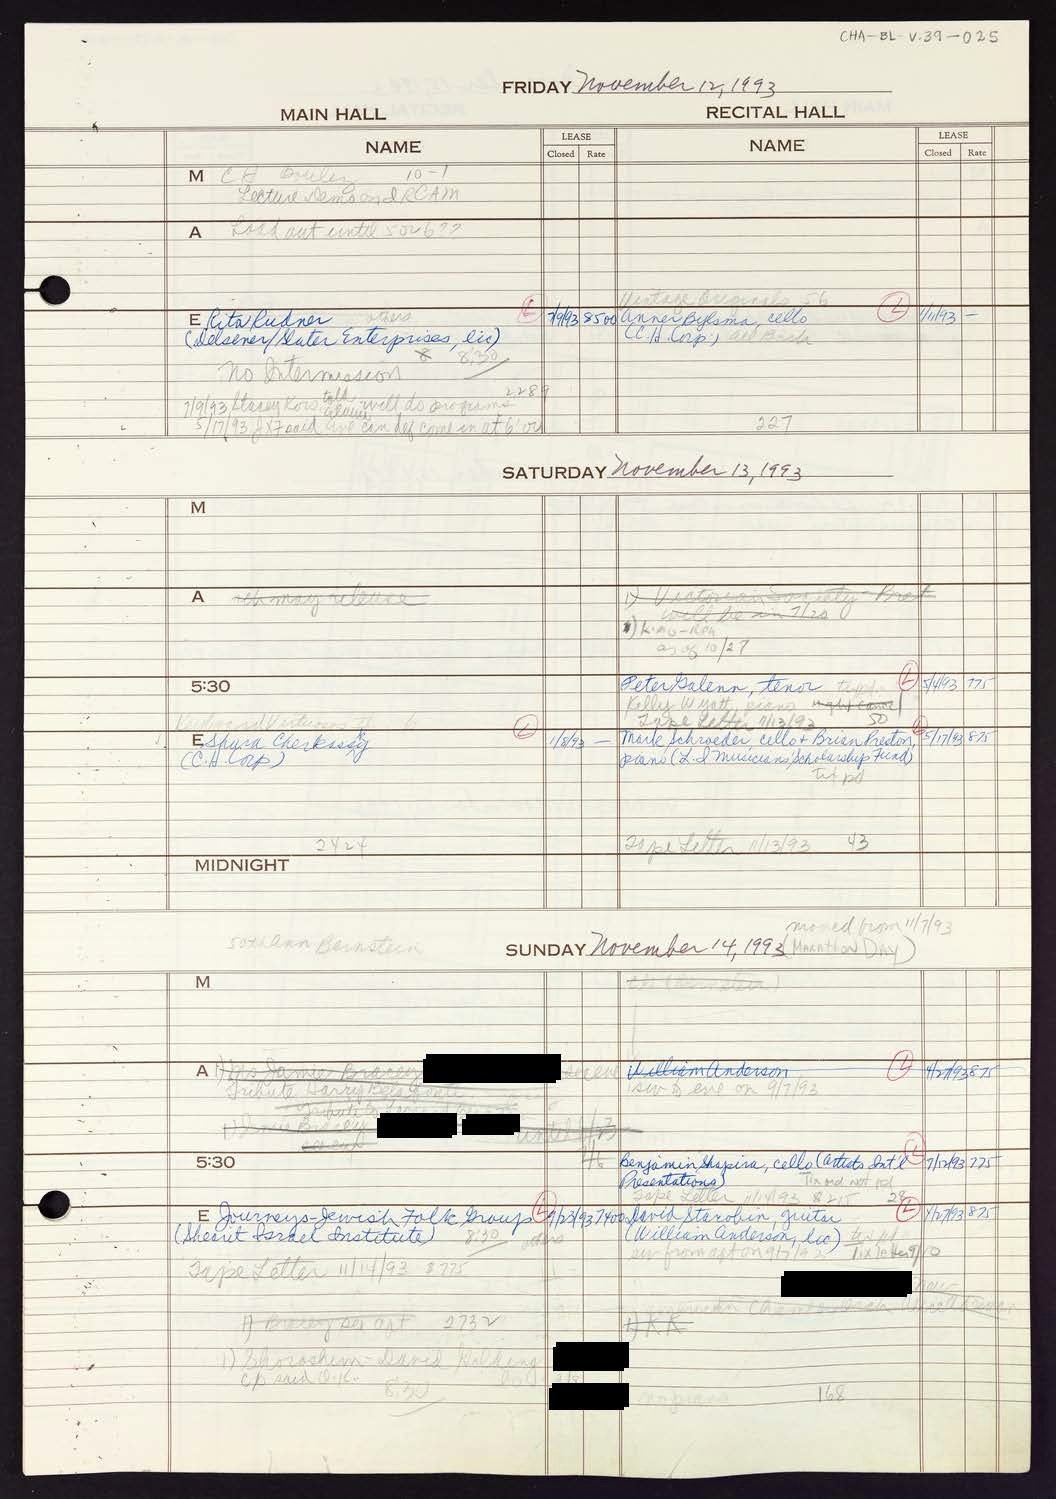 CHA-BL-V.39-025
FRIDAY November 12, 1993
MAIN HALL
RECITAL HALL
NAME
LEASE
Closed Rate
NAME
LEASE
Closed Rate
M
10-1
Lecture Demo and IRCAM
A Load out until 5 or 6??
Vintage Originals 56
E Rita Rudner others L 7/9/93 8500
(Delsener/Slater Enterprises, lic)
8 8:30
No Intermission
2289
7/9/93 Stacey Kors told will do programs
5/17/93 said we can def come in at 6 or
Anner Bylsma, cello L 1/11/93 —
(C.H. Corp.) all Bach
227
SATURDAY November 13, 1993
M
A rch may release
1) Victorian Society-
will be in 7/20
as of 10/27
5:30
Peter Galenn, tenor L 5/4/93 775
Kelly Wyatt, piano might cancel
Tape Letter 11/13/93 50
6
E Shura Cherkassky L 1/8/93 —
(C.H. Corp)
2424
Mark Schroeder cello + Brian Preston, L 5/17/93 875
piano (L.I. Musicians' Scholarship Fund)
Tix pd
Tape Letter 11/13/93 43
MIDNIGHT
Bernstein
SUNDAY November 14, 1993 (moved from 11/7/93
Marathon Day)
M
(Bernstein)
A 1) Ms Jamie Bracey
Tribute Harry Belafonte
1) Jamie Bracey until
William Anderson L 4/27/93 875
sw to eve on 9/7/93
5:30
Benjamin Shapira, cello (Artists Int'l L 7/12/93 775
Presentations) Tix ord not pd
Tape Letter 11/14/93 8215 28
E Journeys-Jewish Folk Group L 9/23/93 7400
(Shearit Israel Institute) 8:30 others
Tape Letter 11/14/93 8775
1) Bracey per apt 2732
1) Shoroshim-David
c/p said O.K.
8:30
David Starobin, guitar L 4/27/93 875
(William Anderson, lic) tix pd
sw from aft on 9/7/93
1) KK
no piano 168